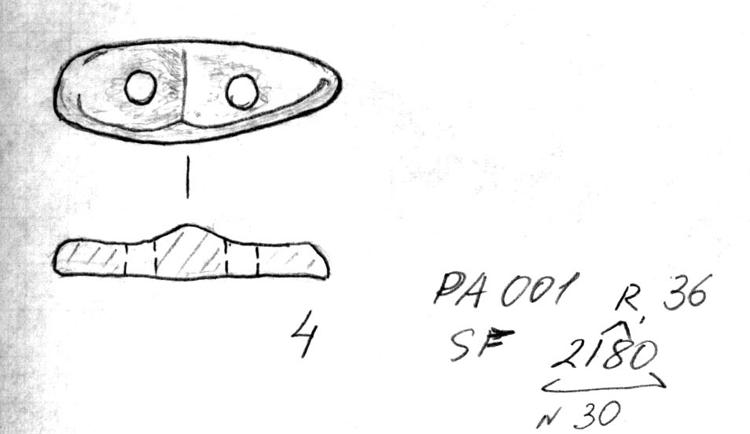 4
PA 001 R, 36
SF 2180
N 30